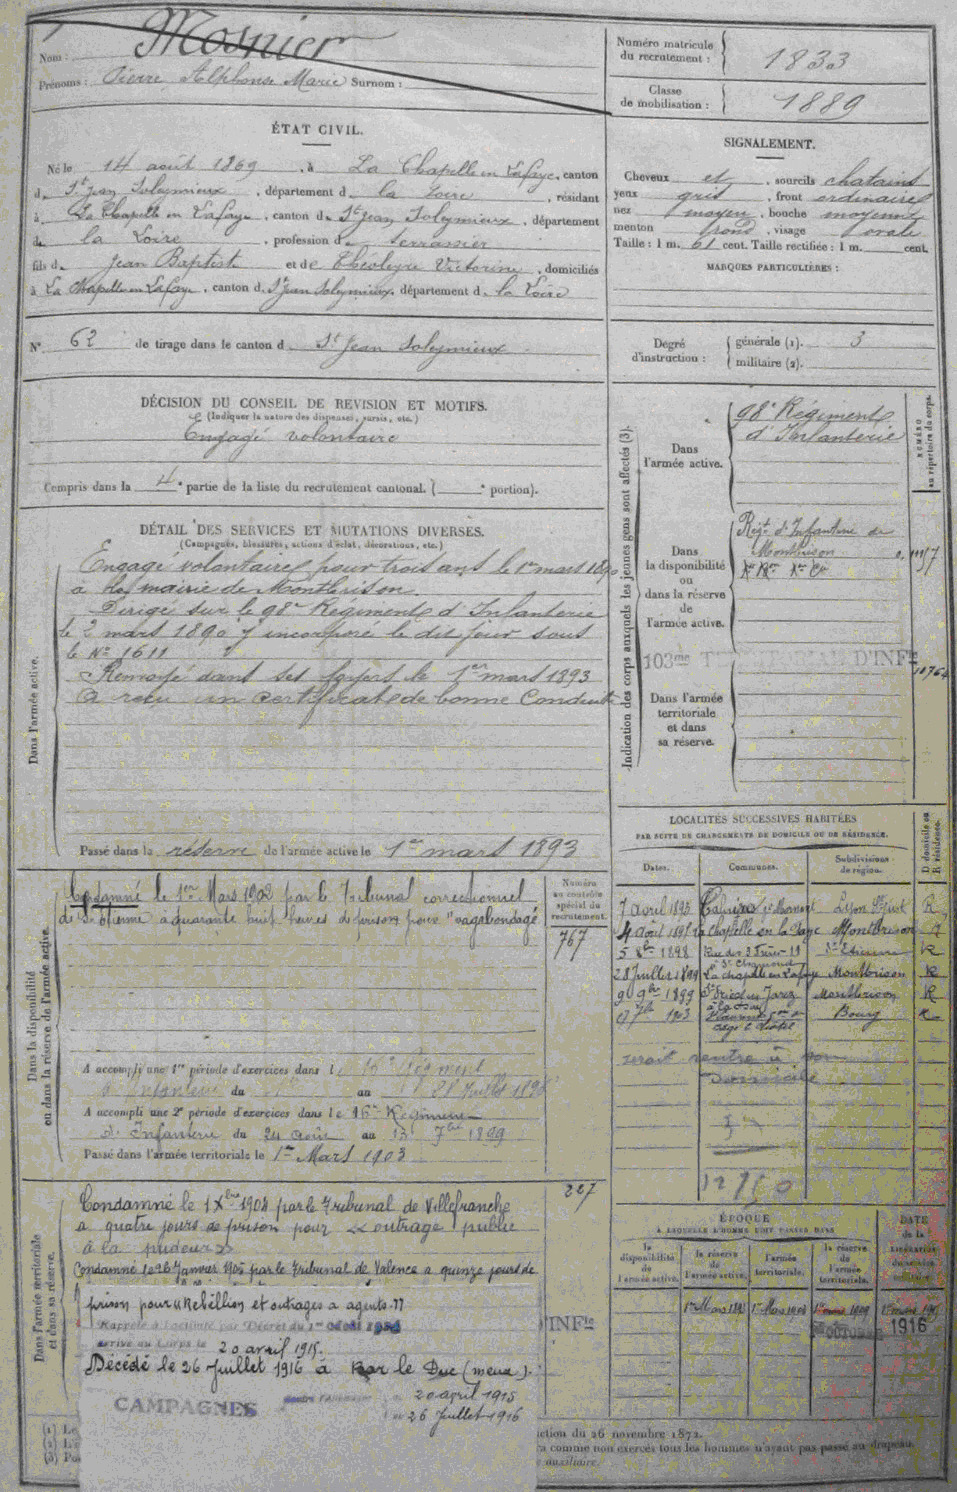 Nom : Mosnier
Prénoms : Pierre Alphonse Marie Surnom :
Numéro matricule du recrutement : 1833
Classe de mobilisation : 1889
ÉTAT CIVIL.
Né le 14 août 1869, à La Chapelle en Lafaye, canton
d. St Jean Soleymieux, département d. la Loire, résidant
à La Chapelle en Lafaye, canton d. St Jean Soleymieux, département
d. la Loire, profession d. terrassier
fils d. Jean Baptiste et de Théoleyre Victorine, domiciliés
à La Chapelle en Lafaye, canton d. St Jean Soleymieux, département d. la Loire
SIGNALEMENT.
Cheveux et, sourcils chatains
yeux gris, front ordinaire
nez moyen, bouche moyenne
menton rond, visage ovale
Taille : 1 m. 61 cent. Taille rectifiée : 1 m. cent.
MARQUES PARTICULIÈRES :
N° 62 de tirage dans le canton d. St Jean Soleymieux
Degré d'instruction : générale (1). 3
militaire (2).
DÉCISION DU CONSEIL DE REVISION ET MOTIFS.
(Indiquer la nature des dispenses, sursis, etc.)
Engagé volontaire
Compris dans la 4e partie de la liste du recrutement cantonal. ( e portion).
DÉTAIL DES SERVICES ET MUTATIONS DIVERSES.
(Campagnes, blessures, actions d'éclat, décorations, etc.)
Dans l'armée active.
Engagé volontaire pour trois ans le 1er mars 1890
à la mairie de Montbrison.
Dirigé sur le 98e Régiment d'Infanterie
le 2 mars 1890 y incorporé le dit jour sous
le N° 1611
Renvoyé dans ses foyers le 1er mars 1893
A reçu un certificat de bonne Conduite
Passé dans la réserve de l'armée active le 1er mars 1893
Indication des corps auxquels les jeunes gens sont affectés (3).
NUMÉRO au répertoire du corps.
Dans l'armée active.
98e Régiment
d'Infanterie
Dans la disponibilité ou dans la réserve de l'armée active.
Régt d'Infanterie de
Montbrison
103me TERRITORIAL D'INFie
Dans l'armée territoriale et dans sa réserve.
LOCALITÉS SUCCESSIVES HABITÉES
PAR SUITE DE CHANGEMENTS DE DOMICILE OU DE RÉSIDENCE.
Dates. Communes. Subdivisions de région. D. domicile ou R. résidence.
7 avril 1893 Lyon R
4 août 1895 La Chapelle en la Faye Montbrison
5 8bre 1898 Rue des 3 Frères 19 St Etienne R
à St Chamond
28 Juillet 1899 La chapelle en Lafaye Montbrison R
9 9bre 1899 Montbrison R
1903 Bourg
serait rentré à son
domicile
Dans la disponibilité ou dans la réserve de l'armée active.
Numéro au contrôle spécial du recrutement.
767
Condamné le 1er Mars 1902 par le Tribunal correctionnel
de St Etienne à quarante huit heures de prison pour "vagabondage
A accompli une 1re période d'exercices dans l 16e Régiment
d'Infanterie du au 28 Juillet 1896
A accompli une 2e période d'exercices dans le 16e Régiment
d'Infanterie du 24 août au 13 7bre 1899
Passé dans l'armée territoriale le 1er Mars 1903
227
Dans l'armée territoriale et dans sa réserve.
Condamné le 1 Xbre 1904 par le Tribunal de Villefranche
a quatre jours de prison pour « outrage public
à la pudeur »
Condamné le 26 Janvier 1905 par le Tribunal de Valence a quinze jours de
prison pour « Rebéllion et outrages a agents »
Rappelé à l'activité par Décret du 1er
arrivé au Corps le 20 avril 1915.
Décédé le 26 Juillet 1916 à Bar le Duc (meuse).
CAMPAGNES
20 avril 1915
26 Juillet 1916
INFie
ÉPOQUE
À LAQUELLE L'HOMME DOIT PASSER DANS
la disponibilité de l'armée active. la réserve de l'armée active. l'armée territoriale. la réserve de l'armée territoriale.
DATE de la LIBÉRATION du service militaire.
1er Mars 1893 1er Mars 1903 1er mars 1909
1er OCTOBRE 1916
ction du 26 novembre 1872.
comme non exercés tous les hommes n'ayant pas passé au drapeau.
auxiliaire.